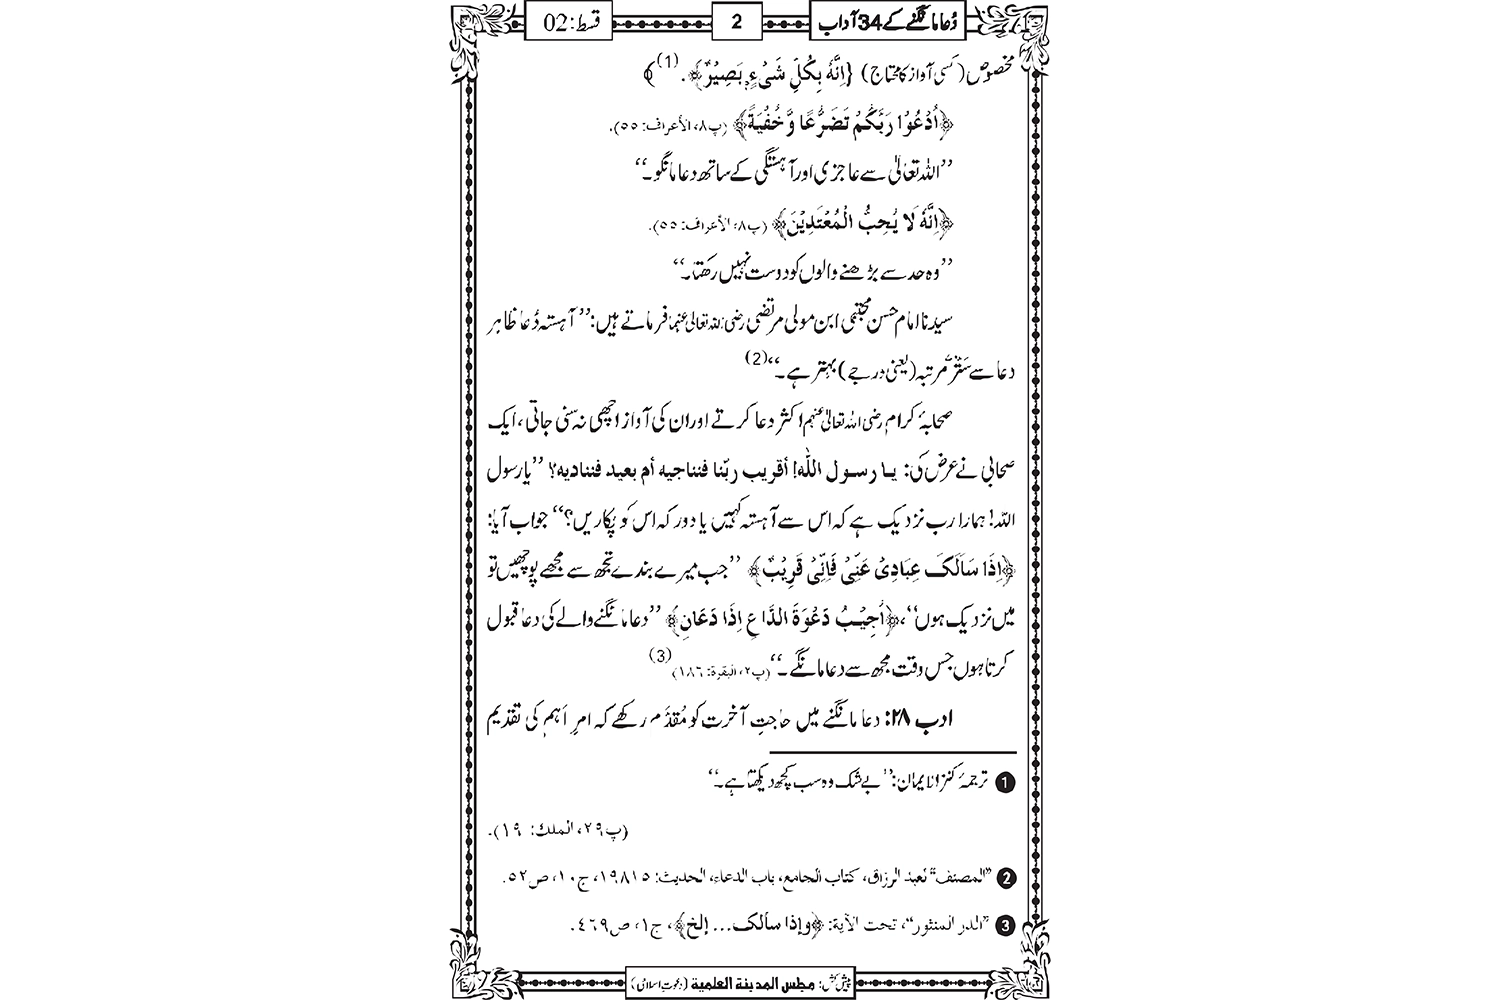 دُعا مانگنے کے 34 آداب
2
قسط: 02
مخصوص (کسی آواز کا محتاج) {اِنَّهٗ بِكُلِّ شَیْءٍۭ بَصِیْرٌ﴾. (1)﴾
﴿اُدْعُوْا رَبَّكُمْ تَضَرُّعًا وَّ خُفْیَةً﴾ (پ۸، الأعراف: ۵۵).
’’اللہ تعالٰی سے عاجزی اور آہستگی کے ساتھ دعا مانگو۔‘‘
﴿اِنَّهٗ لَا یُحِبُّ الْمُعْتَدِیْنَ﴾ (پ۸، الأعراف: ۵۵).
’’وہ حد سے بڑھنے والوں کو دوست نہیں رکھتا۔‘‘
سیدنا امام حسن مجتبٰی ابن مولی مرتضی رضی اللہ تعالٰی عنہما فرماتے ہیں: ’’آہستہ دُعا ظاہر
دعا سے ستّر مرتبہ (یعنی درجے) بہتر ہے۔‘‘(2)
صحابۂ کرام رضی اللہ تعالٰی عنہم اکثر دعا کرتے اور ان کی آواز اچھی نہ سنی جاتی، ایک
صحابی نے عرض کی: یا رسول اللّٰہ! أقریب ربّنا فنناجیه أم بعید فننادیه؟ ’’یا رسول
اللہ! ہمارا رب نزدیک ہے کہ اس سے آہستہ کہیں یا دور کہ اس کو پکاریں؟‘‘ جواب آیا:
﴿اِذَا سَاَلَكَ عِبَادِیْ عَنِّیْ فَاِنِّیْ قَرِیْبٌ﴾ ’’جب میرے بندے تجھ سے مجھے پوچھیں تو
میں نزدیک ہوں‘‘، ﴿اُجِیْبُ دَعْوَةَ الدَّاعِ اِذَا دَعَانِ﴾ ’’دعا مانگنے والے کی دعا قبول
کرتا ہوں جس وقت مجھ سے دعا مانگے۔‘‘ (پ۲، البقرة: ۱۸۶)(3)
ادب ۲۸: دعا مانگنے میں حاجتِ آخرت کو مُقَدَّم رکھے کہ امرِ اَہم کی تقدیم
1 ترجمۂ کنز الایمان: ’’بے شک وہ سب کچھ دیکھتا ہے۔‘‘
(پ۲۹، الملك: ۱۹).
2 "المصنف" لعبد الرزاق، كتاب الجامع، باب الدعاء، الحديث: ۱۹۸۱۵، ج۱۰، ص۵۲.
3 "الدر المنثور"، تحت الآية: ﴿وإذا سألك... إلخ﴾، ج۱، ص۴۶۹.
پیش کش: مجلس المدینة العلمیة (دعوتِ اسلامی)